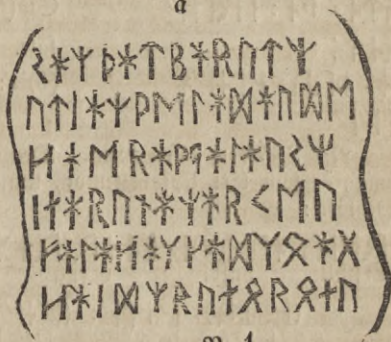 a
ᛊᚼᛉᚦᚼᛏᛒᚼᚱᚢᛏᛉ
ᚢᛏᛁᚼᛉᚹᛖᛚᚼᛞᚼᚢᛞᛖ
ᚺᚼᛖᚱᚼᛗᚼᛚᚼᚢᛊᛉ
ᛁᚾᚼᚱᚢᚾᚼᛉᚼᚱᚲᛖᚢ
ᚠᚼᛚᚼᚺᚼᛉᚴᚼᛞᛉᛟᚼᚷ
ᚺᚼᛁᛞᛉᚱᚢᚾᛟᚱᛟᚾᚢ